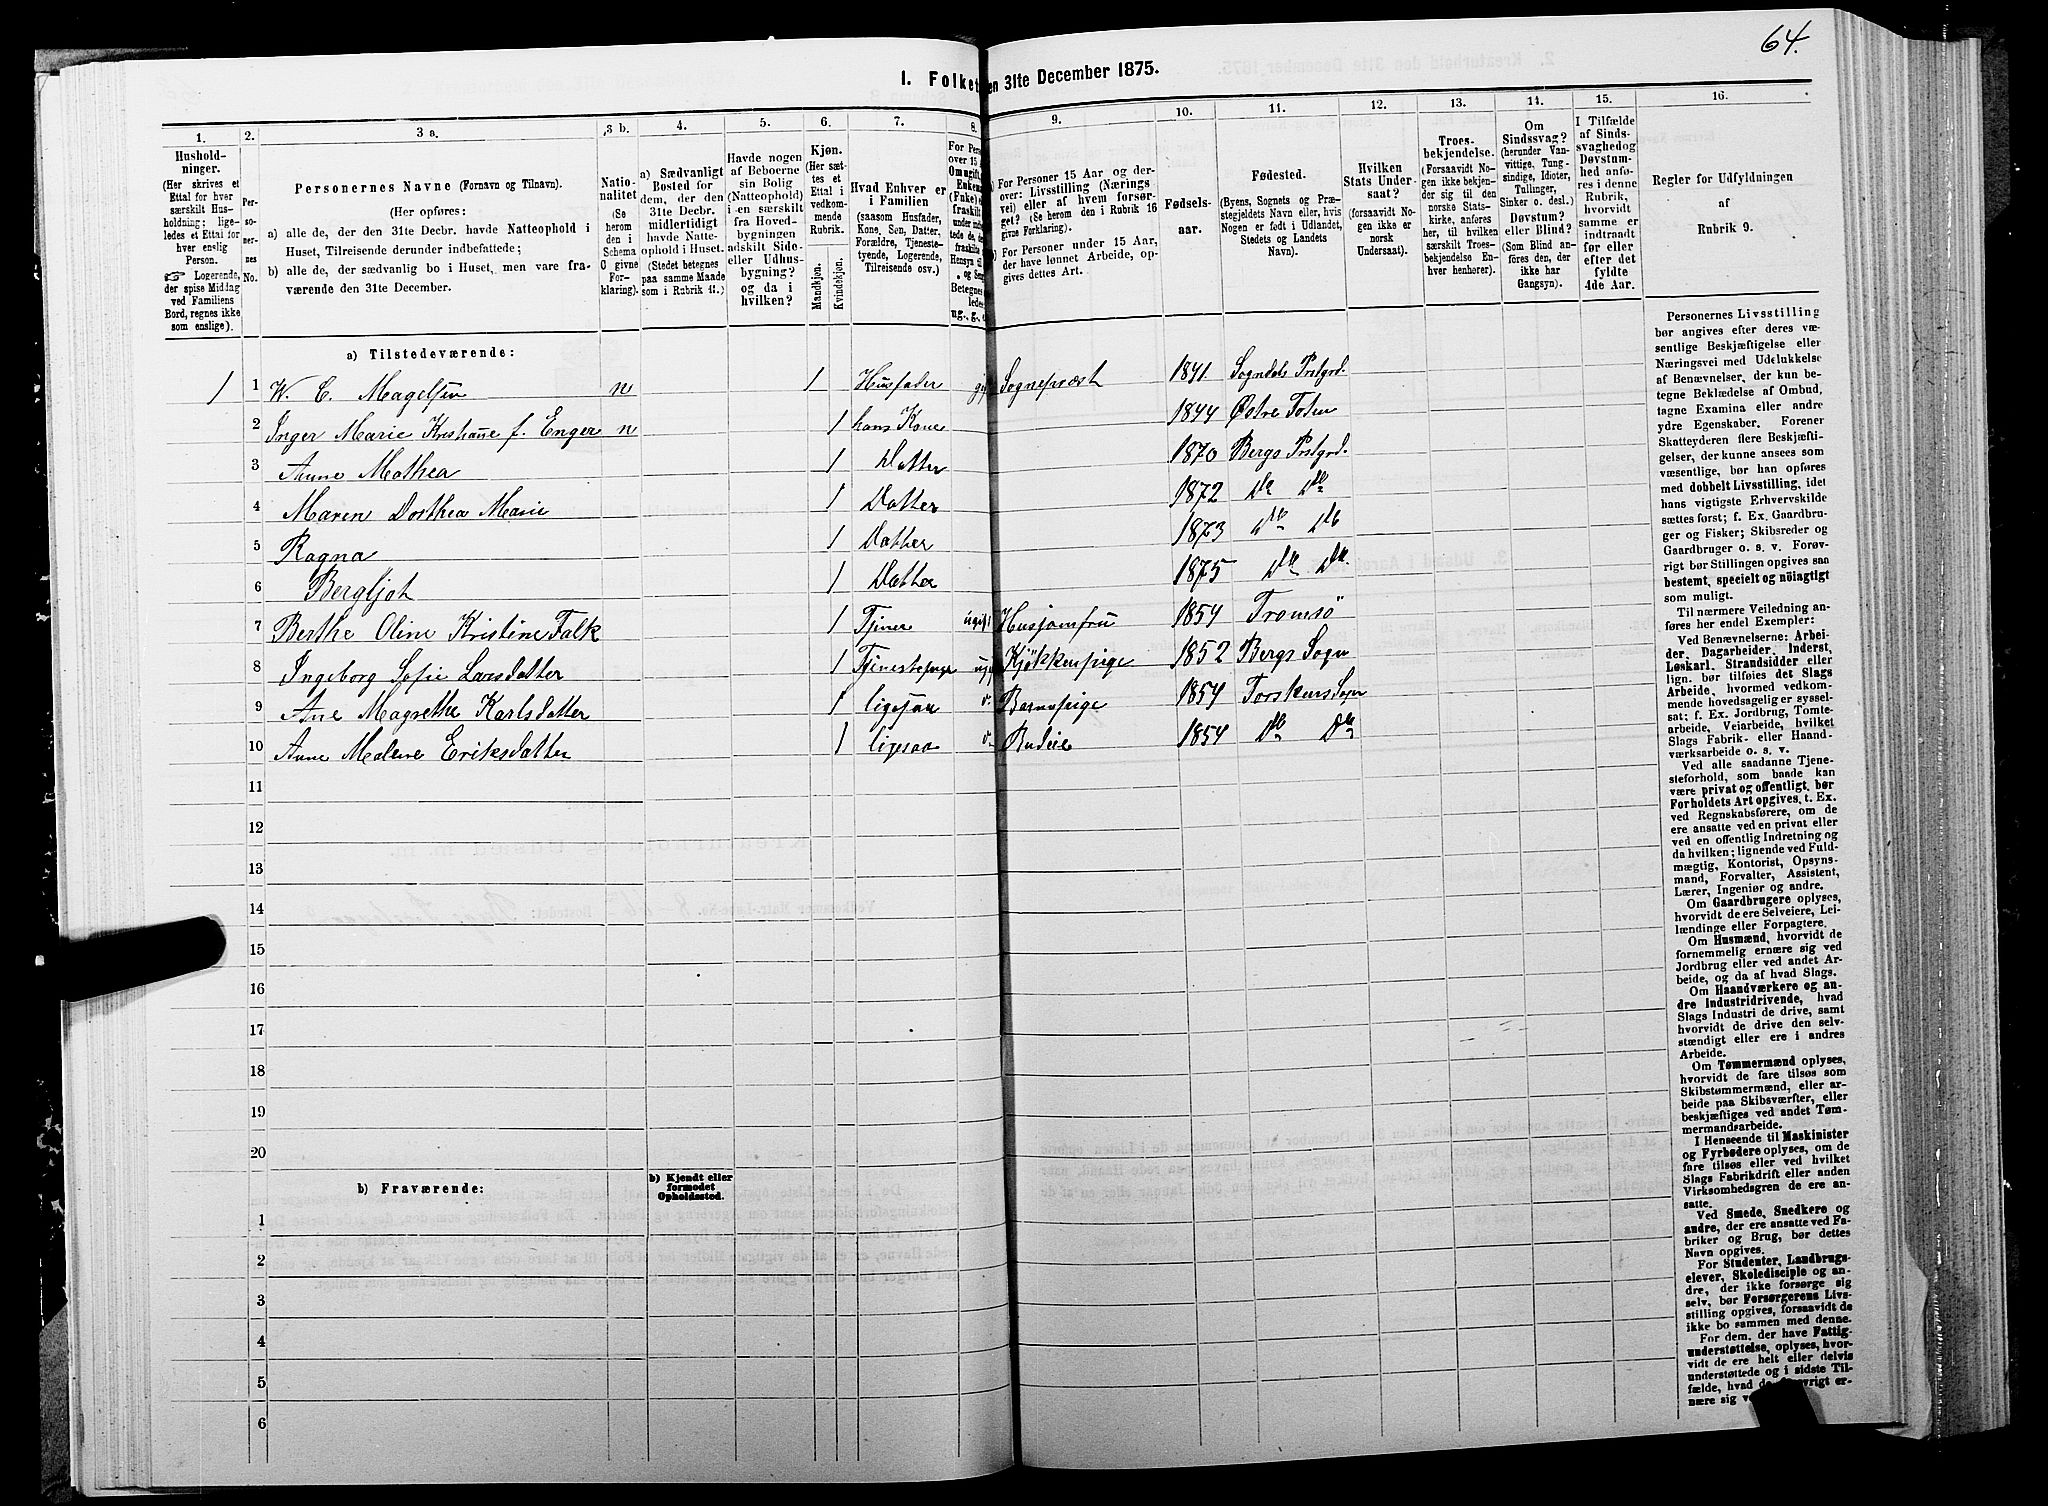 64.
1. Folket
en 31te December 1875.
1.
Hushold-
ninger.
(Her skrives et
Ettal for hver
særskilt Hus-
holdning; lige-
ledes et Ettal for
hver enslig
Person.
☞ Logerende,
der spise Middag
ved Familiens
Bord, regnes ikke
som enslige).
2.
Per-
so-
ner-
nes
No.
3 a.
Personernes Navne (Fornavn og Tilnavn).
(Her opføres:
a) alle de, der den 31te Decbr. havde Natteophold i
Huset, Tilreisende derunder indbefattede;
b) alle de, der sædvanlig bo i Huset, men vare fra-
værende den 31te December.
3 b.
Natio-
nalitet
(Se
herom
den i
Schema
C givne
For-
klaring).
4.
a) Sædvanligt
Bosted for
dem, der den
31te Decbr.
midlertidigt
havde Natte-
ophold i Huset.
(Stedet betegnes
paa samme Maade
som i Rubrik 11.)
5.
Havde nogen
af Beboerne
sin Bolig
(Natteophold)
i en særskilt
fra Hoved-
bygningen
adskilt Side-
eller Udhus-
bygning?
og da i
hvilken?
6.
Kjøn.
(Her sæt-
tes et
Ettal i
vedkom-
mende
Rubrik.
Mandkjøn.
Kvindekjøn.
7.
Hvad Enhver er
i Familien
(saasom Husfader,
Kone, Søn, Datter,
Forældre, Tjeneste-
tyende, Logerende,
Tilreisende osv.)
8.
For Pers
over 15 A
Om ugift,
Enkem
(Enke) e
fraskilt
9.
For Personer 15 Aar og der-
over: Livsstilling (Nærings
vei) eller af hvem forsør-
get? (Se herom den i Rubrik 16
givne Forklaring).
For Personer under 15 Aar,
der have lønnet Arbeide, op-
gives dettes Art.
10.
Fødsels-
aar.
11.
Fødested.
(Byens, Sognets og Præ-
stegjeldets Navn eller, hvis
Nogen er født i Udlandet,
Stedets og Landets
Navn).
12.
Hvilken
Stats Under-
saat?
(forsaavidt No-
gen ikke er
norsk
Undersaat).
13.
Troes-
bekjendelse.
(Forsaavidt No-
gen ikke bekjen-
der sig til den
norske Stats-
kirke, anføres
her, til hvilken
særskilt Troes-
bekjendelse En-
hver henhører).
14.
Om
Sindssvag?
(herunder Van-
vittige, Tung-
sindige, Idioter,
Tullinger,
Sinker o. desl.)
Døvstum?
eller Blind?
(Som Blind an-
føres den, der
ikke har
Gangsyn).
15.
I Tilfælde
af Sinds-
svaghed og
Døvstum-
hed anfø-
res i denne
Rubrik,
hvorvidt
samme er
indtraadt
før eller
efter det
fyldte
4de Aar.
16.
Regler for Udfyldningen
af
Rubrik 9.
a) Tilstedeværende:
1 1 W. C. Magelsen n 1 Husfader gift Sognepræst 1841. Sogndals Prstgrd.
2 Inger Marie Kristiane f. Enger n 1 hans Kone 1844 Østre Toten
3 Anne Mathea 1 Datter 1870 Bergs Prstgrd.
4 Maren Dorthea Marie 1 Datter 1872 Do Do
5 Ragna 1 Datter 1873 Do Do
6 Bergljot 1 Datter 1875 Do Do.
7 Berthe Oline Kristine Falk 1 Tjener ugift Husjomfru 1854 Tromsö
8 Ingeborg Sofie Larsdatter 1 Tjenestepige Kjøkkenpige 1852 Bergs Sogn
9 Ane Magrethe Karlsdatter 1 ligesaa Barnepige 1854 Torskens Sogn
10 Anne Malene Eriksdatter 1 ligesaa Budeie 1854 Do Do
11
12
13
14
15
16
17
18
19
20
b) Fraværende:
b) Kjendt eller
formodet
Opholdssted.
1
2
3
4
5
6
Personernes Livsstilling
bør angives efter deres væ-
sentlige Beskjæftigelse eller
Næringsvei med Udelukkelse
af Benævnelser, der kun be-
tegne Beklædelse af Ombud,
tagne Examina eller andre
ydre Egenskaber. Forener
Skatteyderen flere Beskjæfti-
gelser, der kunne ansees som
væsentlige, bør han opføres
med dobbelt Livsstilling, idet
hans vigtigste Erhvervskilde
sættes først; f. Ex. Gaardbru-
ger og Fisker; Skibsreder og
Gaardbruger o. s. v. Forøv-
rigt bør Stillingen opgives saa
bestemt, specielt og nöiagtigt
som muligt.
Til nærmere Veiledning an-
føres her endel Exempler:
Ved Benævnelserne: Arbei-
der, Dagarbeider, Inderst,
Løskarl, Strandsidder eller
lign. bør tilføies det Slags
Arbeide, hvormed vedkom-
mende hovedsagelig er syssel-
sat; f. Ex. Jordbrug, Tomte-
arbeide, Veiarbeide, hvilket
Slags Fabrik- eller Haand-
værksarbeide o. s. v.
Ved alle saadanne Tjene-
steforhold, som baade kan
være privat og offentligt, bør
Forholdets Art opgives, t. Ex.
ved Regnskabsførere, om de
ere ansatte ved en privat eller
ved en offentlig Indretning og
da hvilken; lignende ved Fuld-
mægtig, Kontorist, Opsyns-
mand, Forvalter, Assistent,
Lærer, Ingeniør og andre.
Om Gaardbrugere oplyses,
hvorvidt de ere Selveiere, Lei-
lændinge eller Forpagtere.
Om Husmænd, hvorvidt de
fornemmelig ernære sig ved
Jordbrug eller ved andet Ar-
beide, og da af hvad Slags.
Om Haandværkere og an-
dre Industridrivende, hvad
Slags Industri de drive, samt
hvorvidt de drive den selv-
stændigt eller ere i andres
Arbeide.
Om Tømmermænd oplyses,
hvorvidt de fare tilsøs som
Skibstømmermænd, eller ar-
beide paa Skibsværfter, eller
beskjæftiges ved andet Tøm-
mermandsarbeide.
I Henseende til Maskinister
og Fyrbødere oplyses, om de
fare tilsøs eller ved hvilket
Slags Fabrikdrift eller anden
Virksomhedsgren de ere an-
satte.
Ved Smede, Snedkere og
andre, der ere ansatte ved Fa-
briker og Brug, bør dettes
Navn opgives.
For Studenter, Landbrugs-
elever, Skoledisciple og an-
dre, der ikke forsørge sig
selv, bør Forsørgerens Livs-
stilling opgives, forsaavidt de
ikke bo sammen med denne.
For dem, der have Fattig-
understøttelse, oplyses, hvor-
vidt de ere helt eller delvis
understøttede og i sidste Til-
fælde, hvad de øvrigt er-
nære sig v